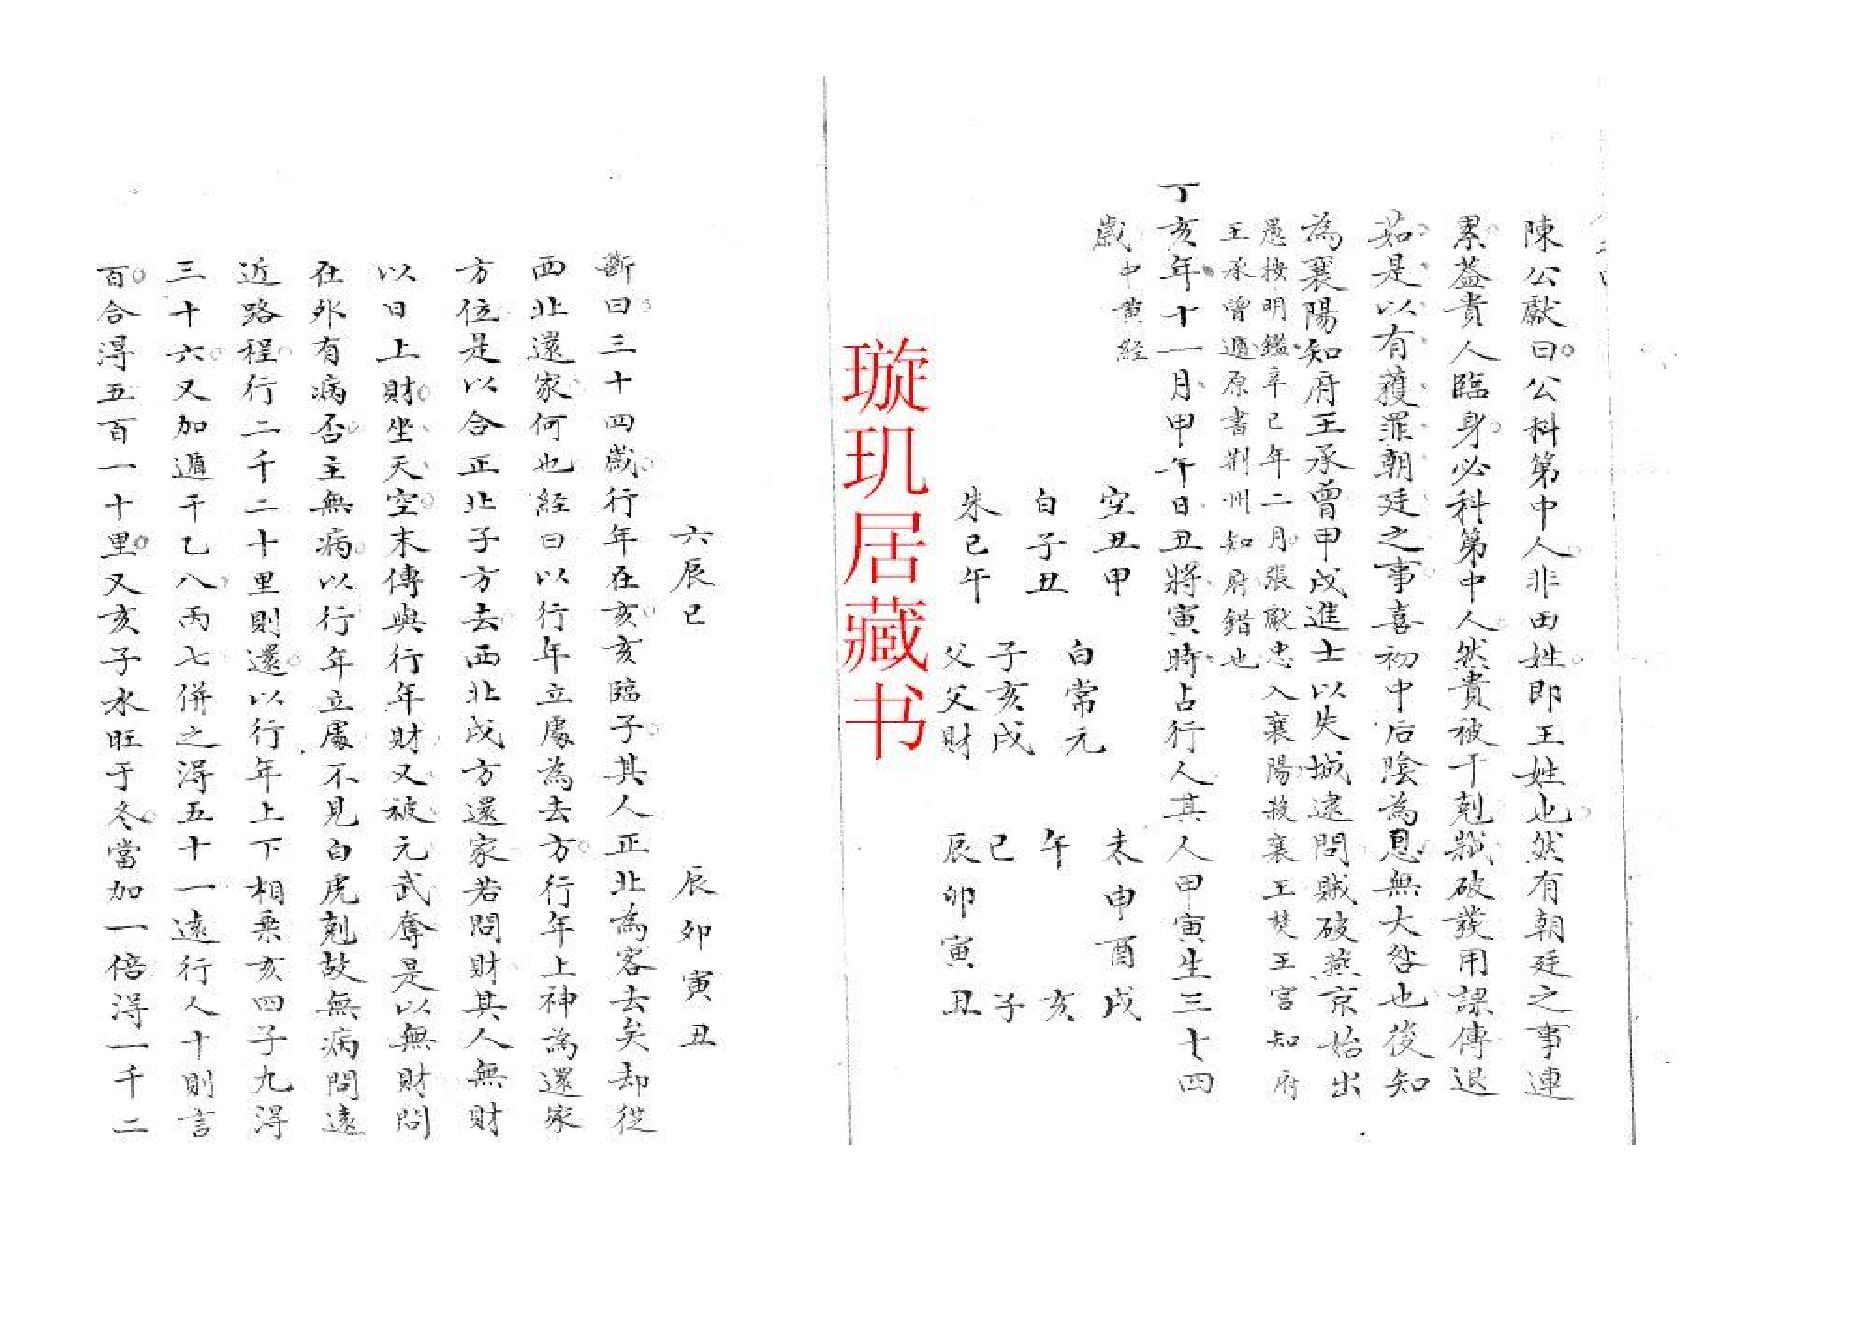 陳公獻曰公科第中人非田姓即王姓也然有朝廷之事連
累益貴人臨身必科第中人然貴被干剋鬼破發用課傳退
茹是以有獲罪朝廷之事喜初中后陰為恩無大咎也後知
為襄陽知府王承曾甲戌進士以失城逮問賊破燕京始出
愚按明鑑辛已年二月張獻忠入襄陽殺襄王焚王宮知府
王承曾遁原書荆州知府錯也
丁亥年十一月甲午日丑將寅時占行人其人甲寅生三十四
歲 中黄経
空丑甲
白子丑
朱已午
白常元
子亥戌
父父財
未申酉戌
午 亥
已 子
辰卯寅丑
璇玑居藏书
六辰已
辰卯寅丑
斷曰三十四歲行年在亥亥臨子其人正北為客去矣却從
西北還家何也経曰以行年立處為去方行年上神為還家
方位是以合正北子方去西北戌方還家若問財其人無財
以日上財坐天空末傳與行年財又被元武奪是以無財問
在外有病否主無病以行年立處不見白虎剋故無病問遠
近路程行二千二十里則還以行年上下相乘亥四子九得
三十六又加遁干乙八丙七併之得五十一遠行人十則言
百合得五百一十里又亥子水旺于冬當加一倍得一千二